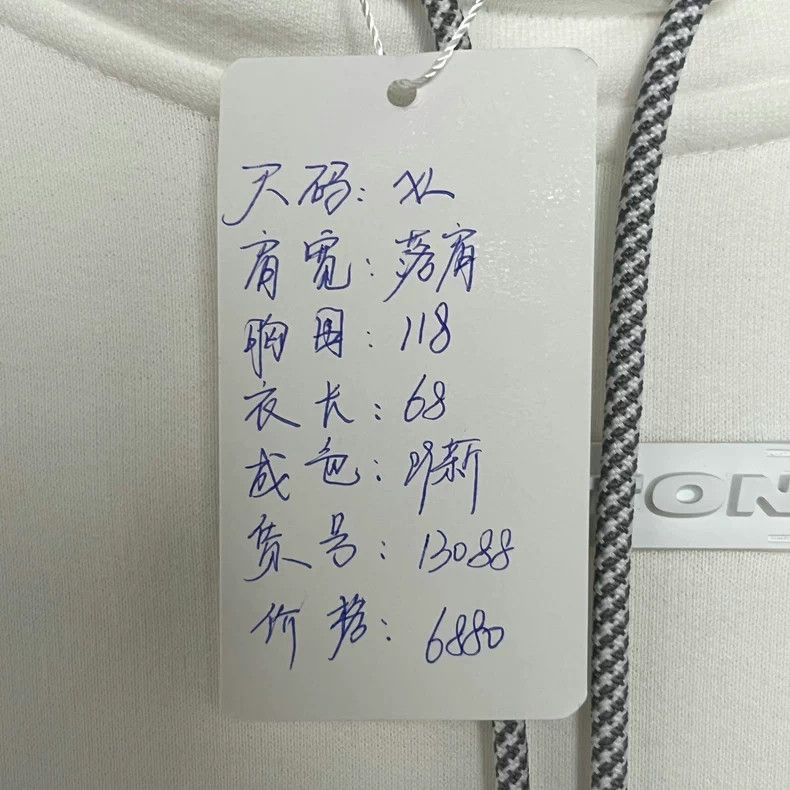 尺码：XL
肩宽：落肩
胸围：118
衣长：68
成色：99新
货号：13088
价格：6880
TON